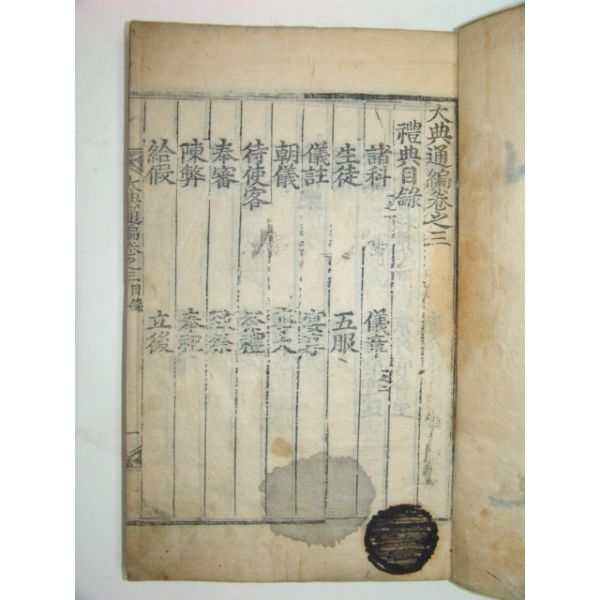 大典通編卷之三
禮典目錄
諸科 儀章
生徒 五服
儀註 宴享
朝儀 事大
待使客 祭禮
奉審 致祭
陳弊 奉祀
給假 立後
大典通編卷之三目錄 一